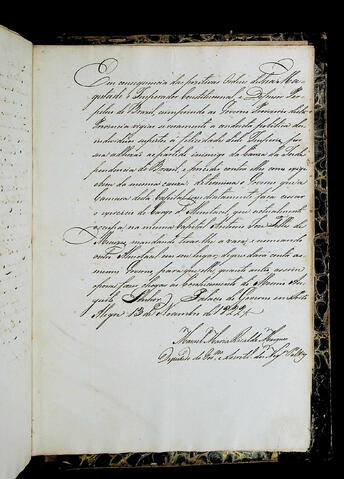 Em consequencia das positivas Ordens de Sua Mag
estade o Imperador Constitucional, e Defensor Per
petuo do Brazil, cumprindo ao Governo Provisorio desta
Provincia vigiar seriamente a conducta politica dos
individuos suspeitos á felicidade deste Imperio por
sua adhesão ao partido inimigo da Causa da Inde
pendencia do Brazil, e proceder contra elles com o rigor
da mesma causa determina o Governo que a
Camara desta Capital immediatamente faça cessar
o exercicio do Cargo d'Almotacel, que actualmente
occupa na mesma Capital Antonio José
de Menezes, mandando tirar-lhe a vara, e nomeando
outro Almotacel em seu lugar, de que dará conta ao
mesmo Governo para que elle, quanto antes, assim
o possa fazer chegar ao Conhecimento do Mesmo Au
gusto Senhor. Palacio do Governo em Porto
Alegre 13 de Novembro de 1822
Manoel Maria Ricalde Marques
Deputado do Gov.no